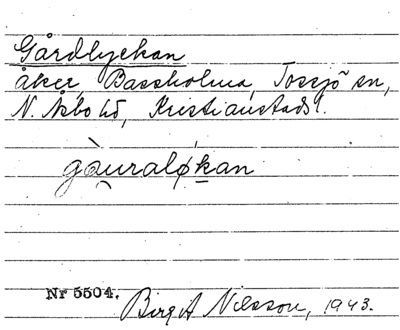 Gårdlyckan
åker, Bassholma, Tossjö sn,
N. Åsbo hd, Kristianstads l.
gàuralǿkan
Nr 5504. Birgit Nilsson, 1943.